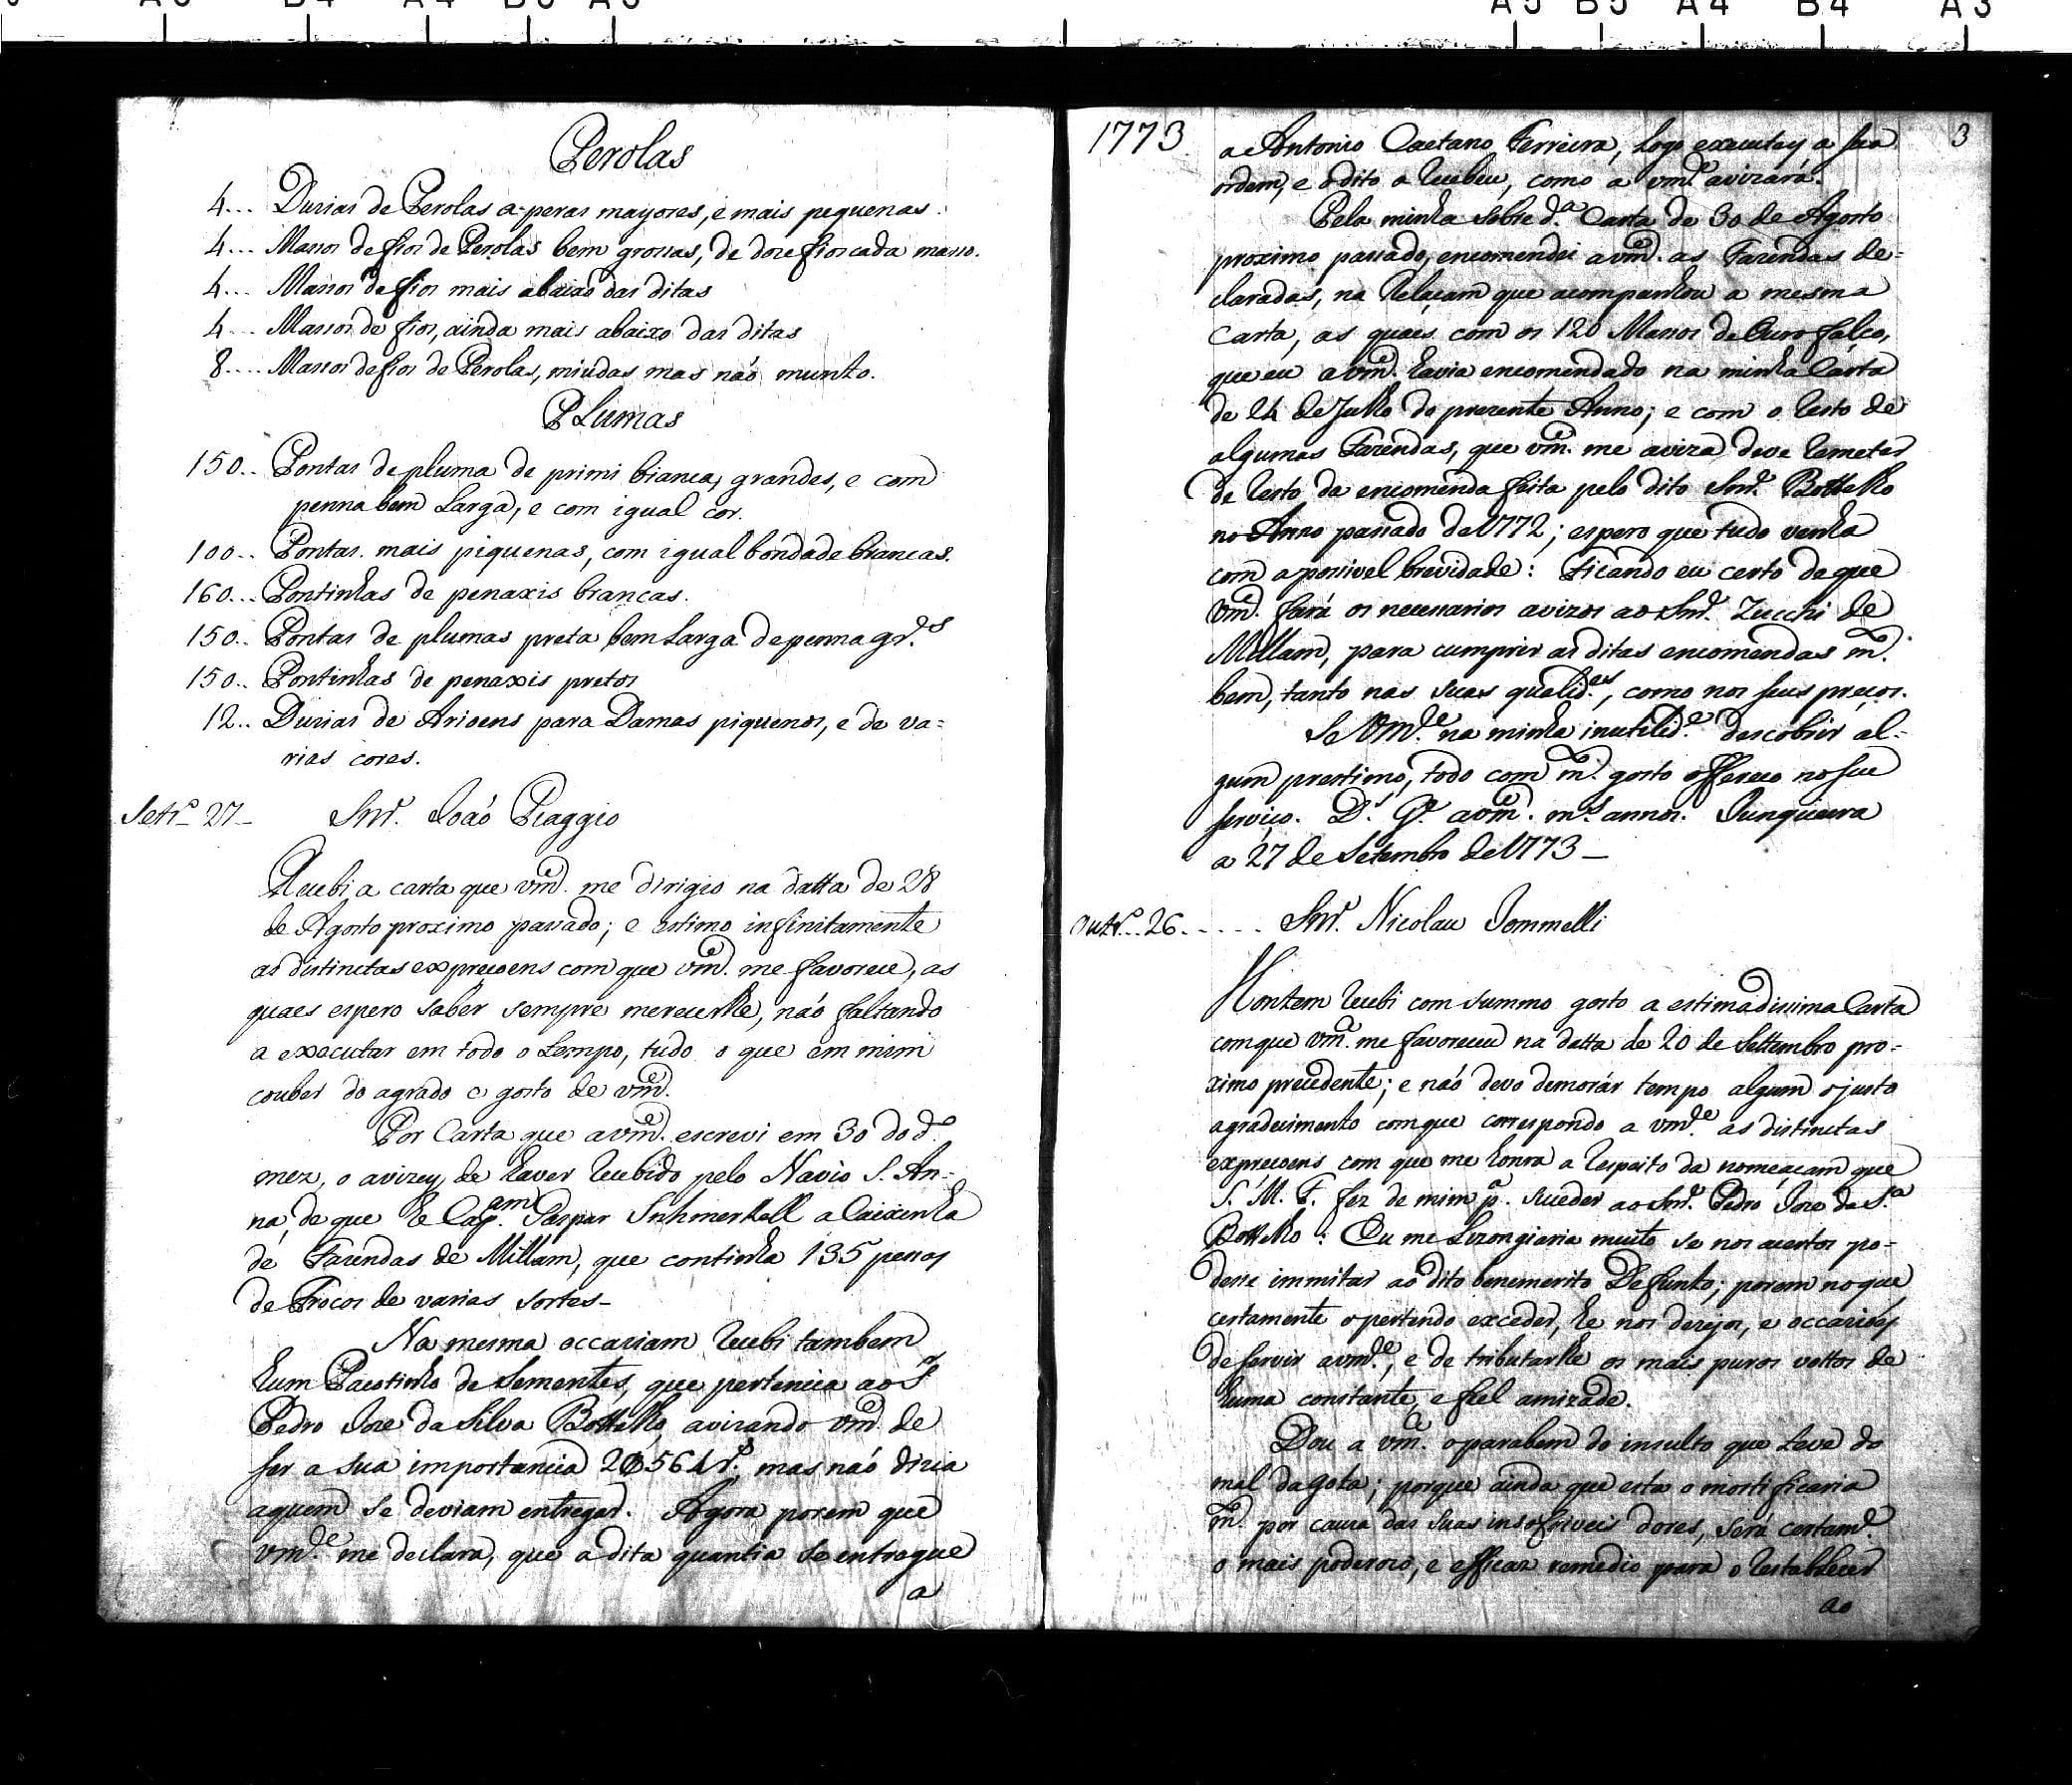 Perolas
4... Duzias de Perolas a peras mayores, e mais pequenas.
4... Massos de fios de Perolas bem grossas, de doze fios cada masso.
4... Massos de fios mais abaixo das ditas
4... Massos de fios, ainda mais abaixo das ditas
8.... Massos de fios de Perolas, miudas mas náo munto.
PLumas
150.. Pontas de pluma de primi bianca, grandes, e com
penna bem Larga, e com igual cor.
100.. Pontas mais piquenas, com igual bondade brancas.
160... Pontinhas de penaxis brancas.
150.. Pontas de plumas preta bem Larga de penna gr.des
150.. Pontinhas de penaxis pretos
12.. Duzias de Arioens para Damas piquenos, e de va=
rias cores.
Setr.o 27_ Snr. Joáo Piaggio
Recebi a carta que vm.ce me dirigio na datta de 28
de Agosto proximo passado; e estimo infinitamente
as distinctas expressoens com que vm.ce me favorece, as
quaes espero saber sempre merecerlhe, náo faltando
a executar em todo o tempo, tudo o que em mim
couber do agrado e gosto de vm.ce
Por Carta que a vm.ce escrevi em 30 do d.o
mez, o avizey de haver recebido pelo Navio S. An=
na, de que he Cap.am Gaspar Suhmerkell a Caixinha
de Fazendas de Millam, que continha 135 pessas
de Frocos de varias sortes_
Na mesma occaziam recebi tambem
hum Pacotinho de Sementes, que pertencia ao S.r
Pedro Joze da Silva Bottelho, avizando vm.ce de
ser a sua importancia 2$564 r.s, mas náo dizia
aquem se deviam entregar. Agora porem que
vm.ce me declara, que a dita quantia se entregue
a
1773 3
a Antonio Caetano Ferreira, Logo executey a sua
ordem, e o dito a recebeu, como a vm.ce avizará.
Pela minha sobre d.a Carta de 30 de Agosto
proximo passado, encomendei a vm.ce as Fazendas de=
claradas, na relaçam que acompanhou a mesma
Carta, as quais com os 120 Massos de Ouro falço,
que eu a vm.ce havia encomendado na minha Carta
de 24 de Julho do prezente Anno; e com o resto de
algumas Fazendas, que vm.ce me aviza deve remeter
de resto da encomenda feita pelo dito Snr. Bottelho
no Anno passado de 1772; espero que tudo venha
com a possivel brevidade: Ficando eu certo de que
vm.ce fará os necessarios avizos ao Snr. Zucchi de
Millam, para cumprir as ditas encomendas m.to
bem, tanto nas suas qualid.es, como nos seus preços.
Se vm.ce na minha inutilid.e descobrir al=
gum prestimo, todo com m.to gosto offereço no seu
serviço. D.s G.e a vm.ce m.s annos. Junqueira
a 27 de Setembro de 1773_
Outr.o 26...... Snr. Nicolau Jommelli
Hontem recebi com summo gosto a estimadissima Carta
com que vm.ce me favoreceu na datta de 20 de Settembro pro=
ximo precedente; e náo devo demorár tempo algum o justo
agradecimento com que correspondo a vm.ce as distinctas
expressoens com que me honra a respeito da nomeaçam que
S. M. F. fez de mim p.a suceder ao Snr. Pedro Joze da S.a
Bottelho: Eu me Lizongiaria muito se nos acertos po=
desse immitar ao dito benemerito Defunto; porem no que
certamente o pertendo exceder, he nos dezejos, e occazioes
de servir a vm.ce, e de tributarlhe os mais puros vottos de
huma constante, e fiel amizade.
Dou a vm.ce o parabem do insulto que teve do
mal da gota; porque ainda que esta o mortificaria
m.to por cauza das suas insofriveis dores, será certam.e
o mais poderozo, e efficaz remedio para o restablecer
ao